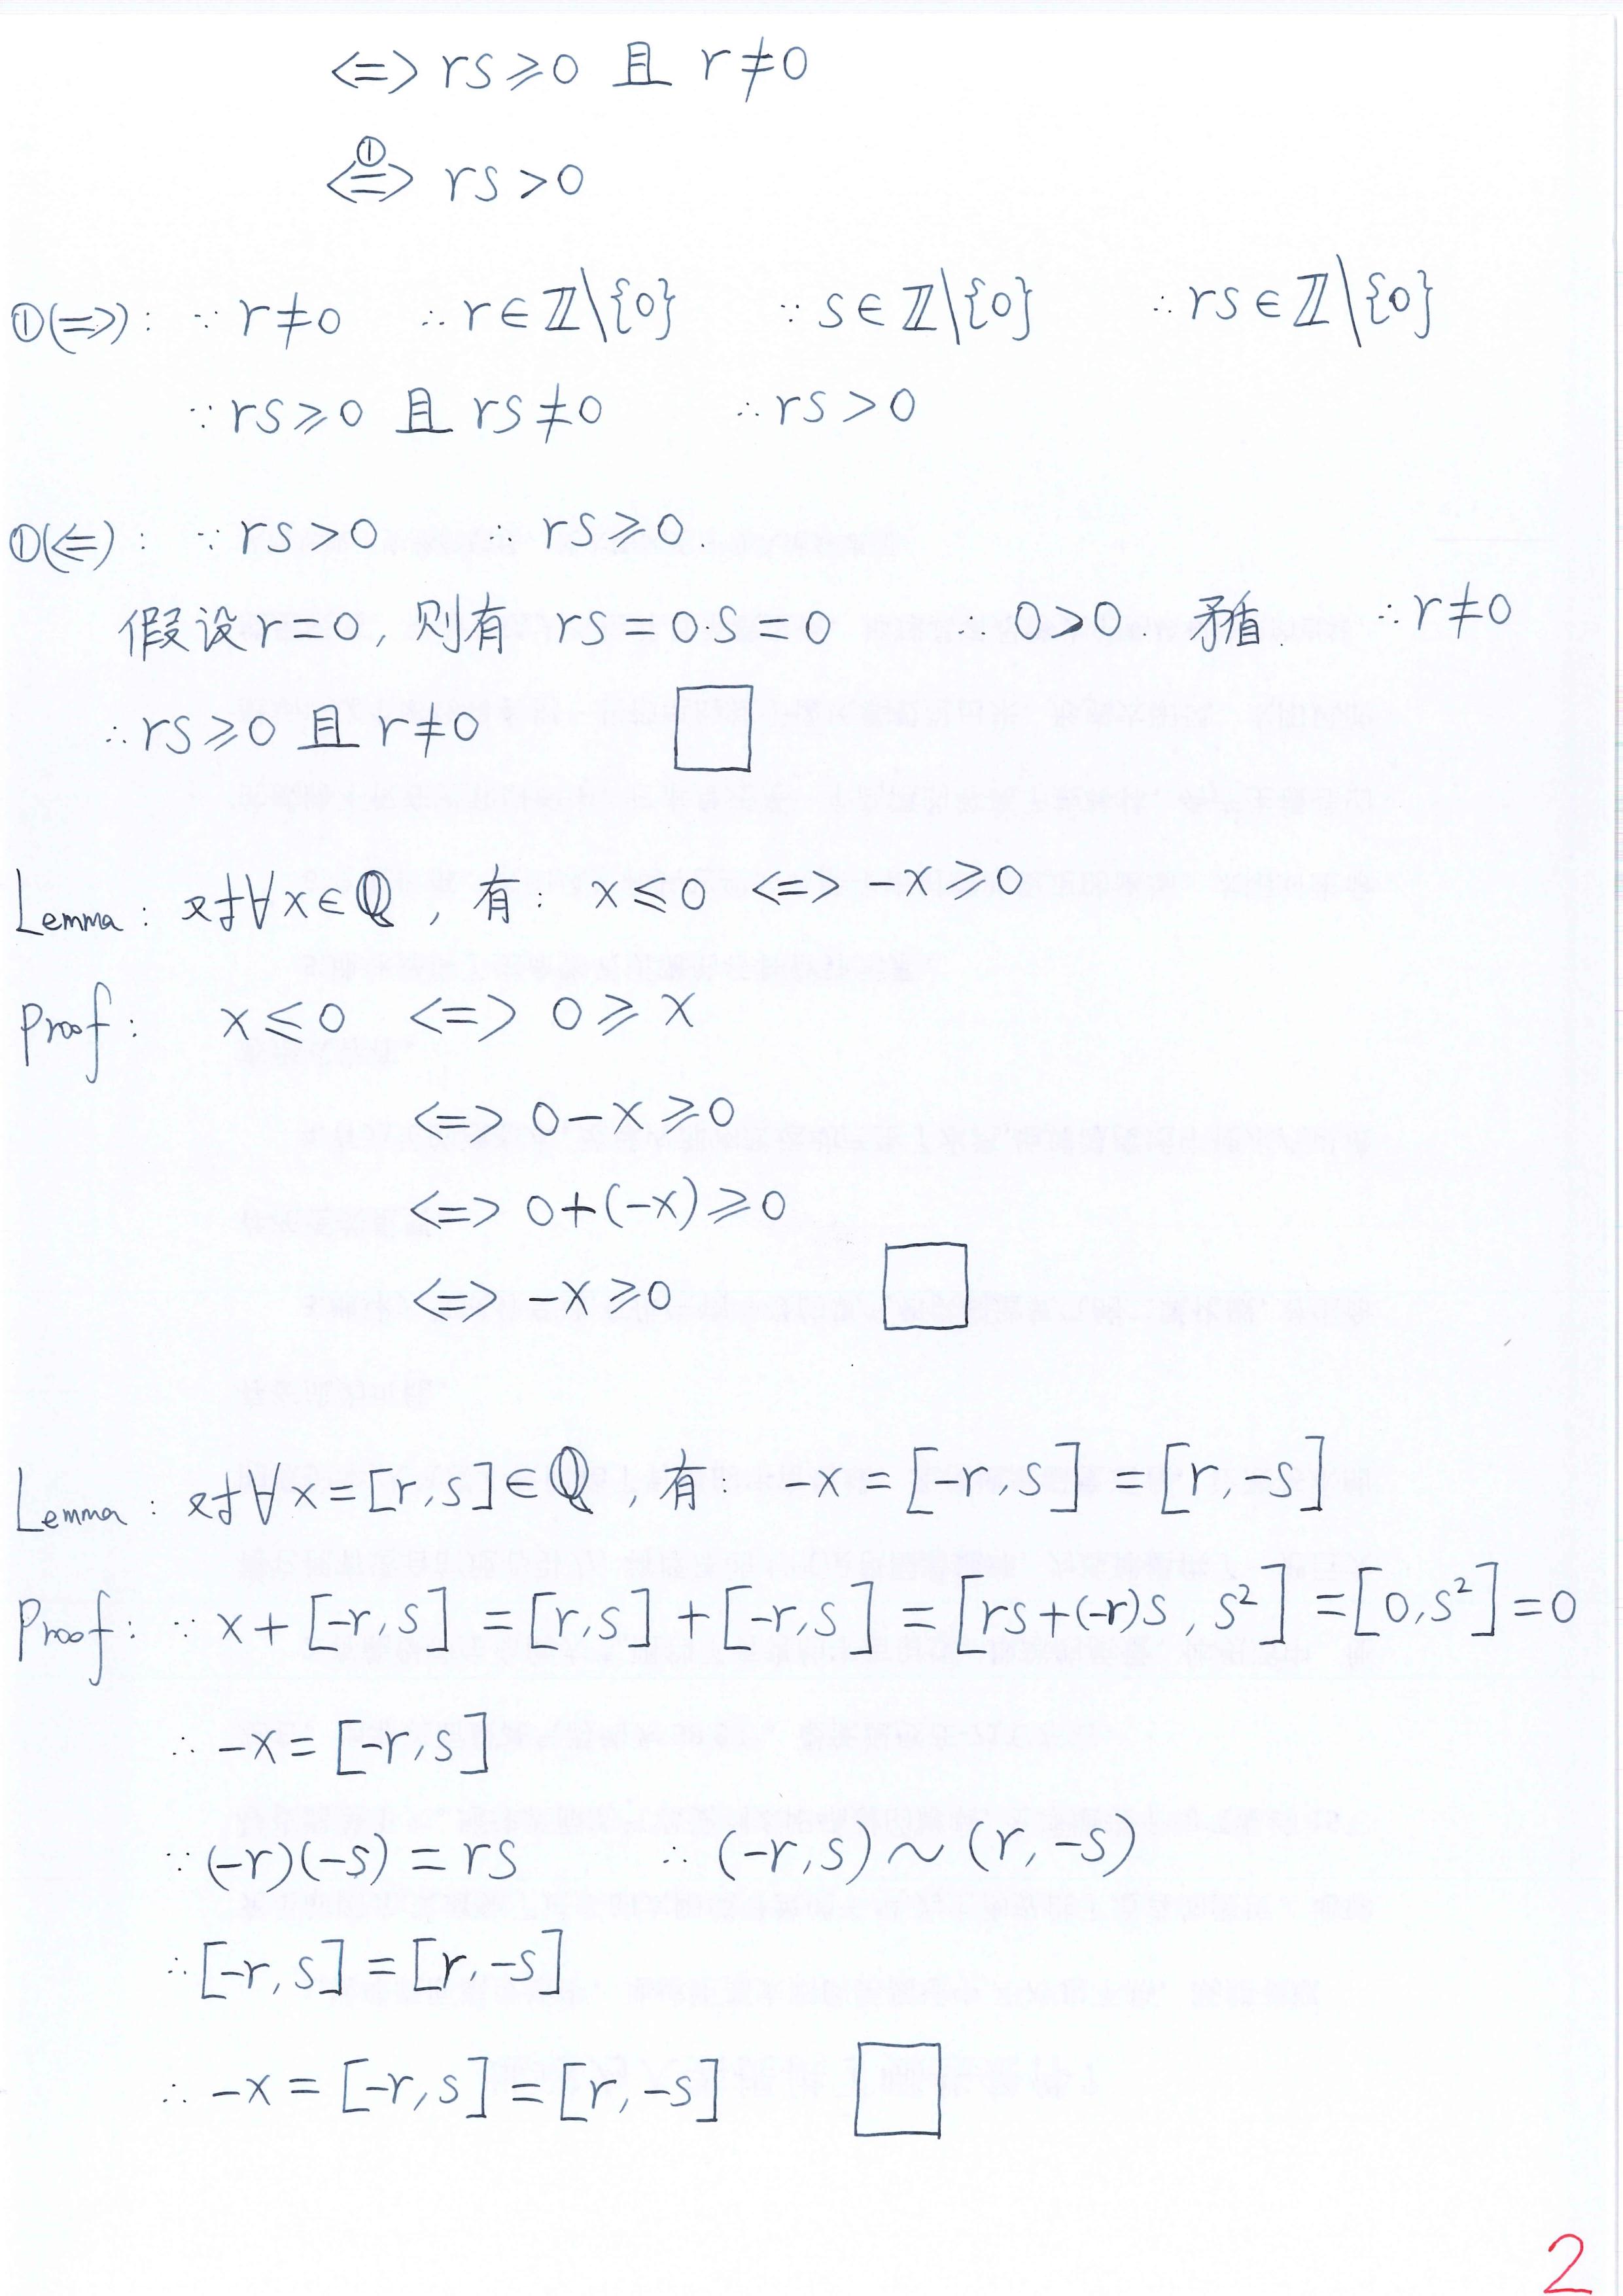 <=> rs ⩾ 0 且 r ≠ 0
<①=> rs > 0
①(=>): ∵ r ≠ 0 ∴ r ∈ ℤ\{0} ∵ s ∈ ℤ\{0} ∴ rs ∈ ℤ\{0}
∵ rs ⩾ 0 且 rs ≠ 0 ∴ rs > 0
①(<=): ∵ rs > 0 ∴ rs ⩾ 0.
假设 r = 0, 则有 rs = 0s = 0 0 > 0. 矛盾. ∴ r ≠ 0
∴ rs ⩾ 0 且 r ≠ 0 □
Lemma: 对∀x ∈ ℚ, 有: x ⩽ 0 <=> -x ⩾ 0
Proof: x ⩽ 0 <=> 0 ⩾ x
<=> 0 - x ⩾ 0
<=> 0 + (-x) ⩾ 0
<=> -x ⩾ 0 □
Lemma: 对∀x = [r, s] ∈ ℚ, 有 -x = [-r, s] = [r, -s]
Proof: ∵ x + [-r, s] = [r, s] + [-r, s] = [rs + (-r)s, s²] = [0, s²] = 0
∴ -x = [-r, s]
∵ (-r)(-s) = rs ∴ (-r, s) ~ (r, -s)
∴ [-r, s] = [r, -s]
∴ -x = [-r, s] = [r, -s] □
2